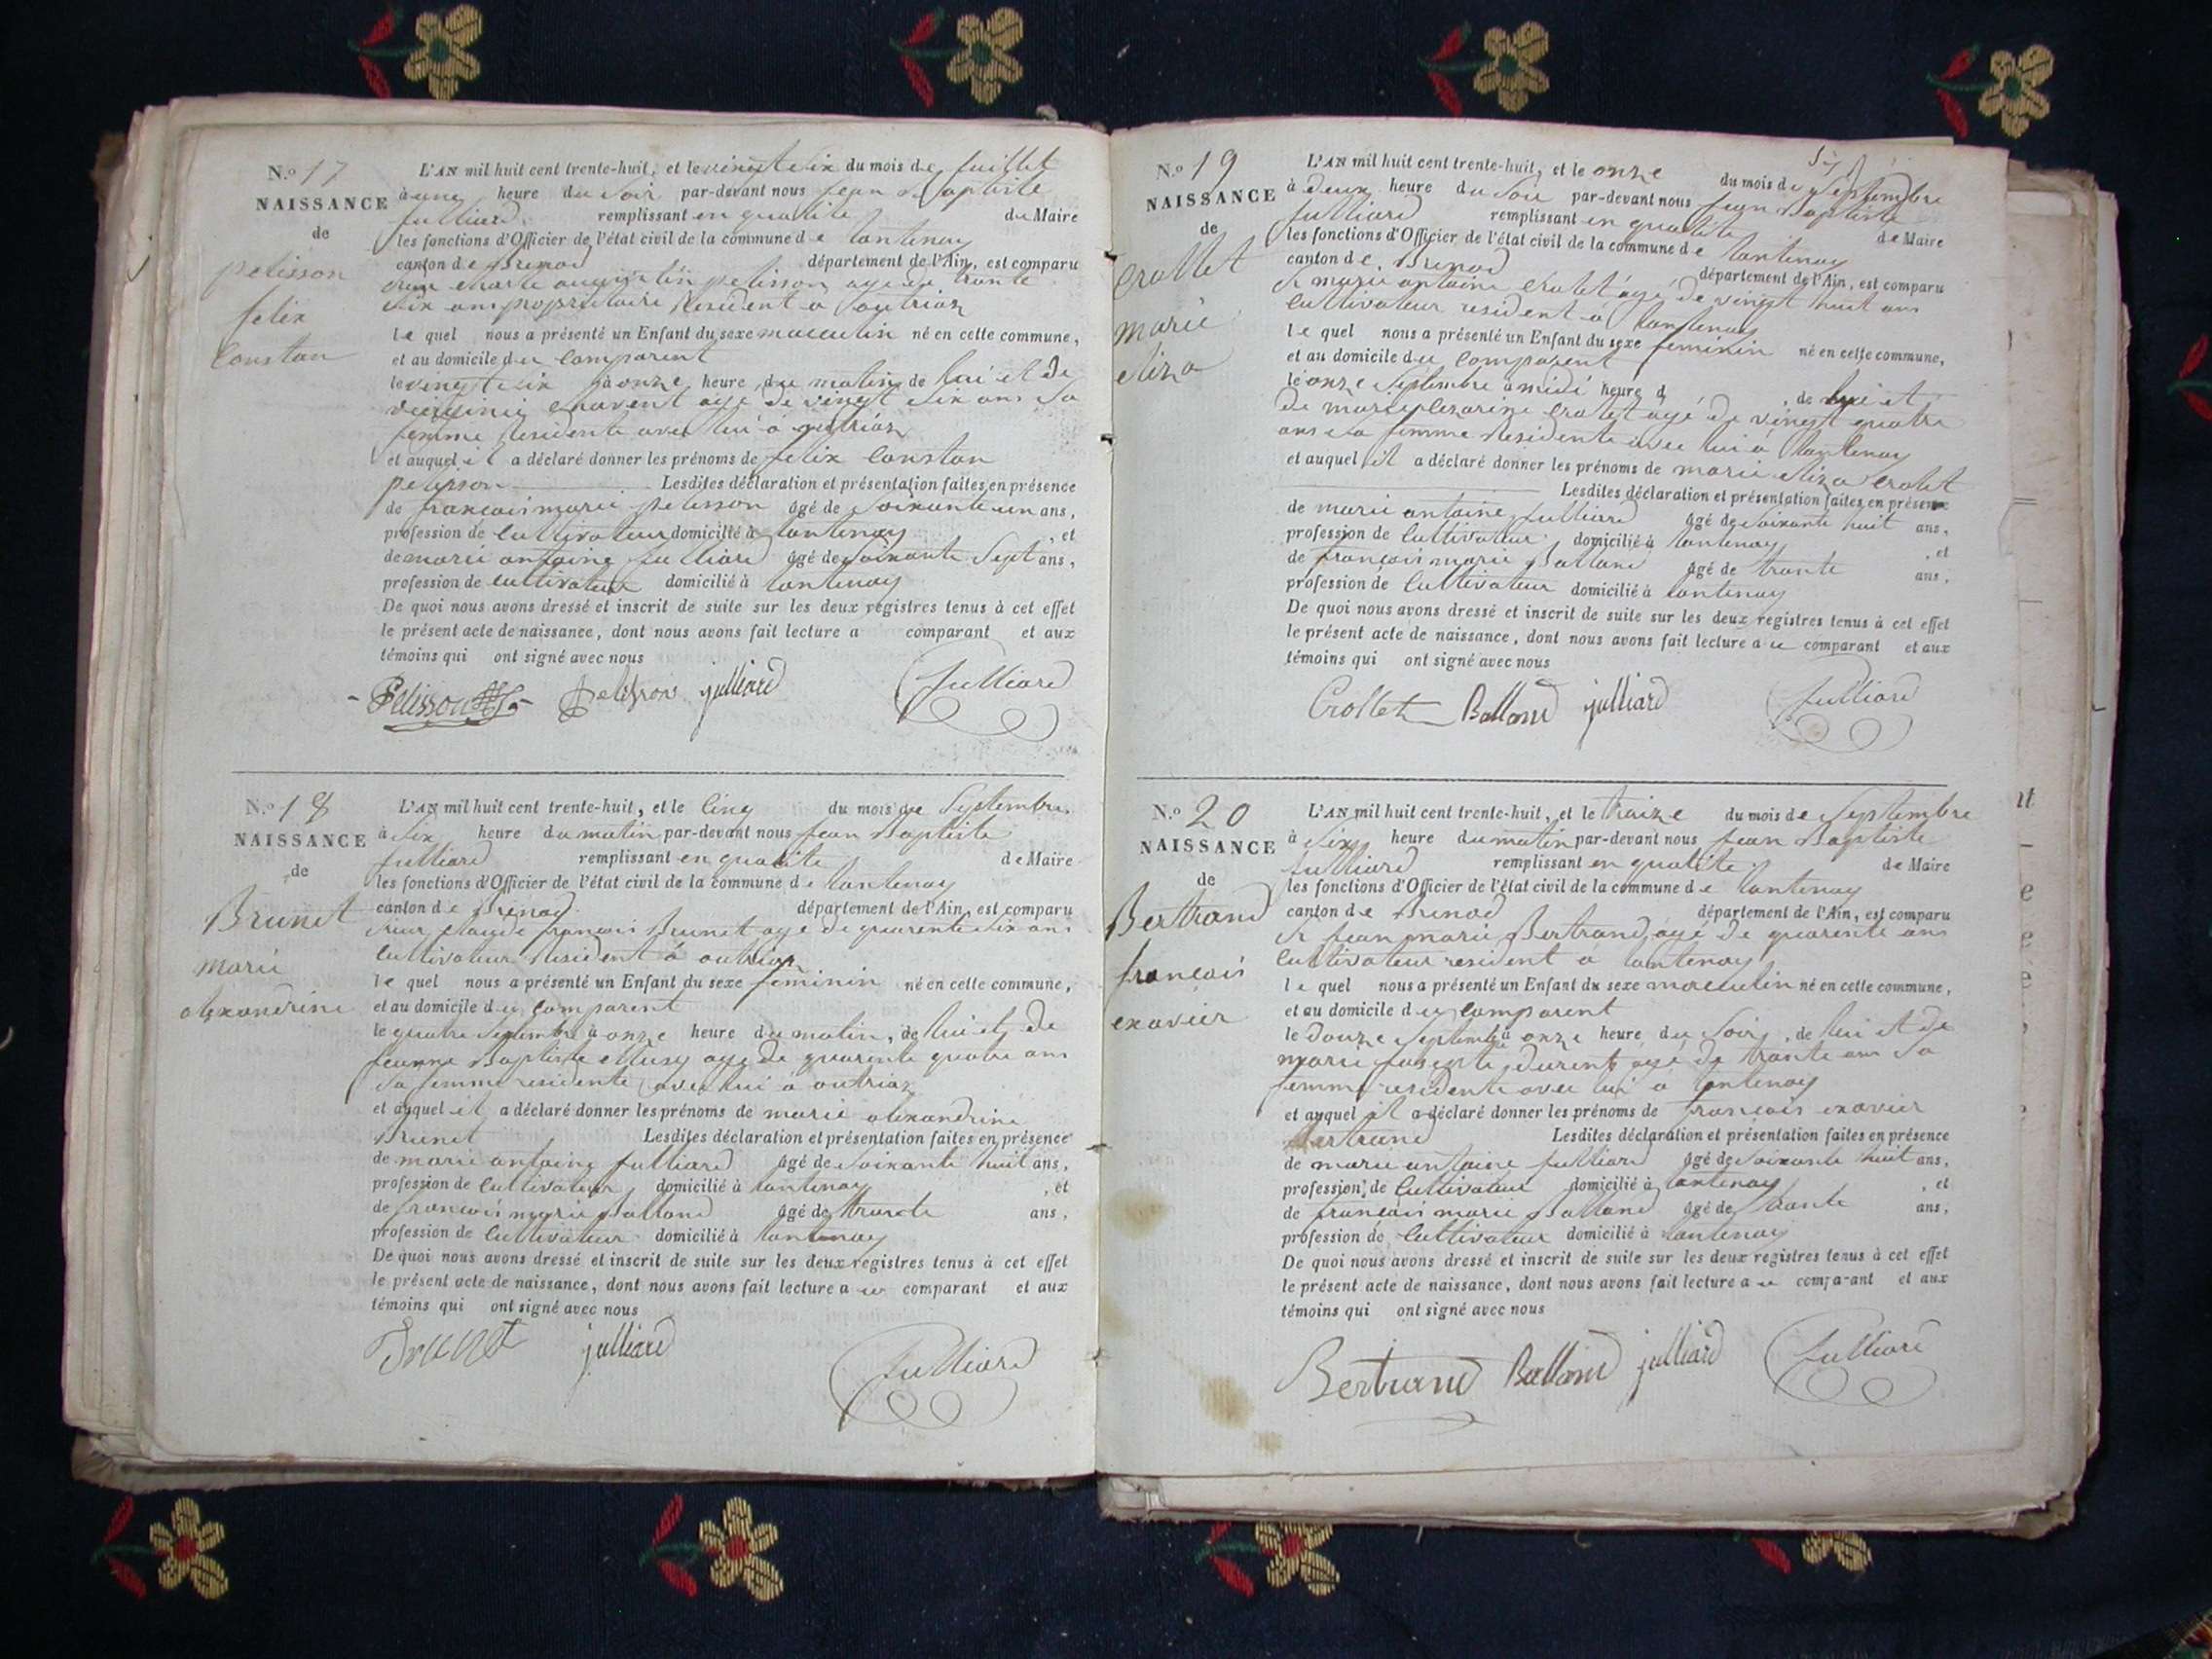 N.º 17
NAISSANCE
de
pelisson
felix
constan
L'AN mil huit cent trente-huit, et le vingt six du mois de juillet
à une heure du soir par-devant nous jean Baptiste
julliard remplissant en qualité du Maire
les fonctions d'Officier de l'état civil de la commune de lantenay
canton de Brenod département de l'Ain, est comparu
augustin pelisson agé de trante
six ans proprietaire Resident a outriaz
le quel nous a présenté un Enfant du sexe masculin né en cette commune,
et au domicile du comparent
le vingt six à onze heure du matin de lui et de
agé de vingt six ans sa
femme Residente avec lui a outriaz
et auquel il a déclaré donner les prénoms de felix constan
pelisson Lesdites déclaration et présentation faites en présence
de francois marie pelisson âgé de soixante un ans,
profession de cultivateur domicilié à lantenay, et
de marie antoine julliard âgé de soixante sept ans,
profession de cultivateur domicilié à lantenay
De quoi nous avons dressé et inscrit de suite sur les deux registres tenus à cet effet
le présent acte de naissance, dont nous avons fait lecture a comparant et aux
témoins qui ont signé avec nous
Pelisson pelisson julliard julliard
N.º 18
NAISSANCE
de
Brunet
marie
alexandrine
L'AN mil huit cent trente-huit, et le cinq du mois de Septembre
à six heure du matin par-devant nous jean Baptiste
julliard remplissant en qualité de Maire
les fonctions d'Officier de l'état civil de la commune de lantenay
canton de Brenod département de l'Ain, est comparu
claude francois Brunet agé de quarente six ans
cultivateur Resident á outriaz
le quel nous a présenté un Enfant du sexe feminin né en cette commune,
et au domicile du comparent
le quatre Septembre à onze heure du matin, de lui et de
jeanne Baptiste agé de quarente quatre ans
sa femme residente avec lui à outriaz
et auquel il a déclaré donner les prénoms de marie alexandrine
Brunet Lesdites déclaration et présentation faites en présence
de marie antoine julliard âgé de soixante huit ans,
profession de cultivateur domicilié à lantenay, et
de francois marie Balland âgé de trante ans,
profession de cultivateur domicilié à lantenay
De quoi nous avons dressé et inscrit de suite sur les deux registres tenus à cet effet
le présent acte de naissance, dont nous avons fait lecture a u comparant et aux
témoins qui ont signé avec nous
Brunet julliard julliard
N.º 19
NAISSANCE
de
crollet
marie
eliza
L'AN mil huit cent trente-huit, et le onze du mois de Septembre
à deux heure du soir par-devant nous jean Baptiste
julliard remplissant en qualité de Maire
les fonctions d'Officier de l'état civil de la commune de lantenay
canton de Brenod département de l'Ain, est comparu
marie antoine crolet âgé de vingt huit ans
cultivateur resident a lantenay
le quel nous a présenté un Enfant du sexe feminin né en cette commune,
et au domicile du comparent
le onze Septembre à midi heure d, de lui et
de marie cezarine crolet agé de vingt quatre
ans sa femme Residente avec lui a lantenay
et auquel il a déclaré donner les prénoms de marie eliza crolet
Lesdites déclaration et présentation faites en présence
de marie antoine julliard âgé de soixante huit ans,
profession de cultivateur domicilié à lantenay, et
de francois marie Balland âgé de trante ans,
profession de cultivateur domicilié à lantenay
De quoi nous avons dressé et inscrit de suite sur les deux registres tenus à cet effet
le présent acte de naissance, dont nous avons fait lecture a u comparant et aux
témoins qui ont signé avec nous
Crollet Balland julliard julliard
N.º 20
NAISSANCE
de
Bertrand
francois
exavier
L'AN mil huit cent trente-huit, et le traize du mois de Septembre
à six heure du matin par-devant nous jean Baptiste
julliard remplissant en qualité de Maire
les fonctions d'Officier de l'état civil de la commune de lantenay
canton de Brenod département de l'Ain, est comparu
jean marie Bertrand agé de quarente ans
cultivateur resident a lantenay
le quel nous a présenté un Enfant du sexe masculin né en cette commune,
et au domicile du comparent
le douze Septembre à onze heure du soir, de lui et de
marie agé de trante ans sa
femme residente avec lui a lantenay
et auquel il a déclaré donner les prénoms de francois exavier
Bertrand Lesdites déclaration et présentation faites en présence
de marie antoine julliard âgé de soixante huit ans,
profession de cultivateur domicilié à lantenay, et
de francois marie Balland âgé de trante ans,
profession de cultivateur domicilié à lantenay
De quoi nous avons dressé et inscrit de suite sur les deux registres tenus à cet effet
le présent acte de naissance, dont nous avons fait lecture a u comparant et aux
témoins qui ont signé avec nous
Bertrand Balland julliard julliard